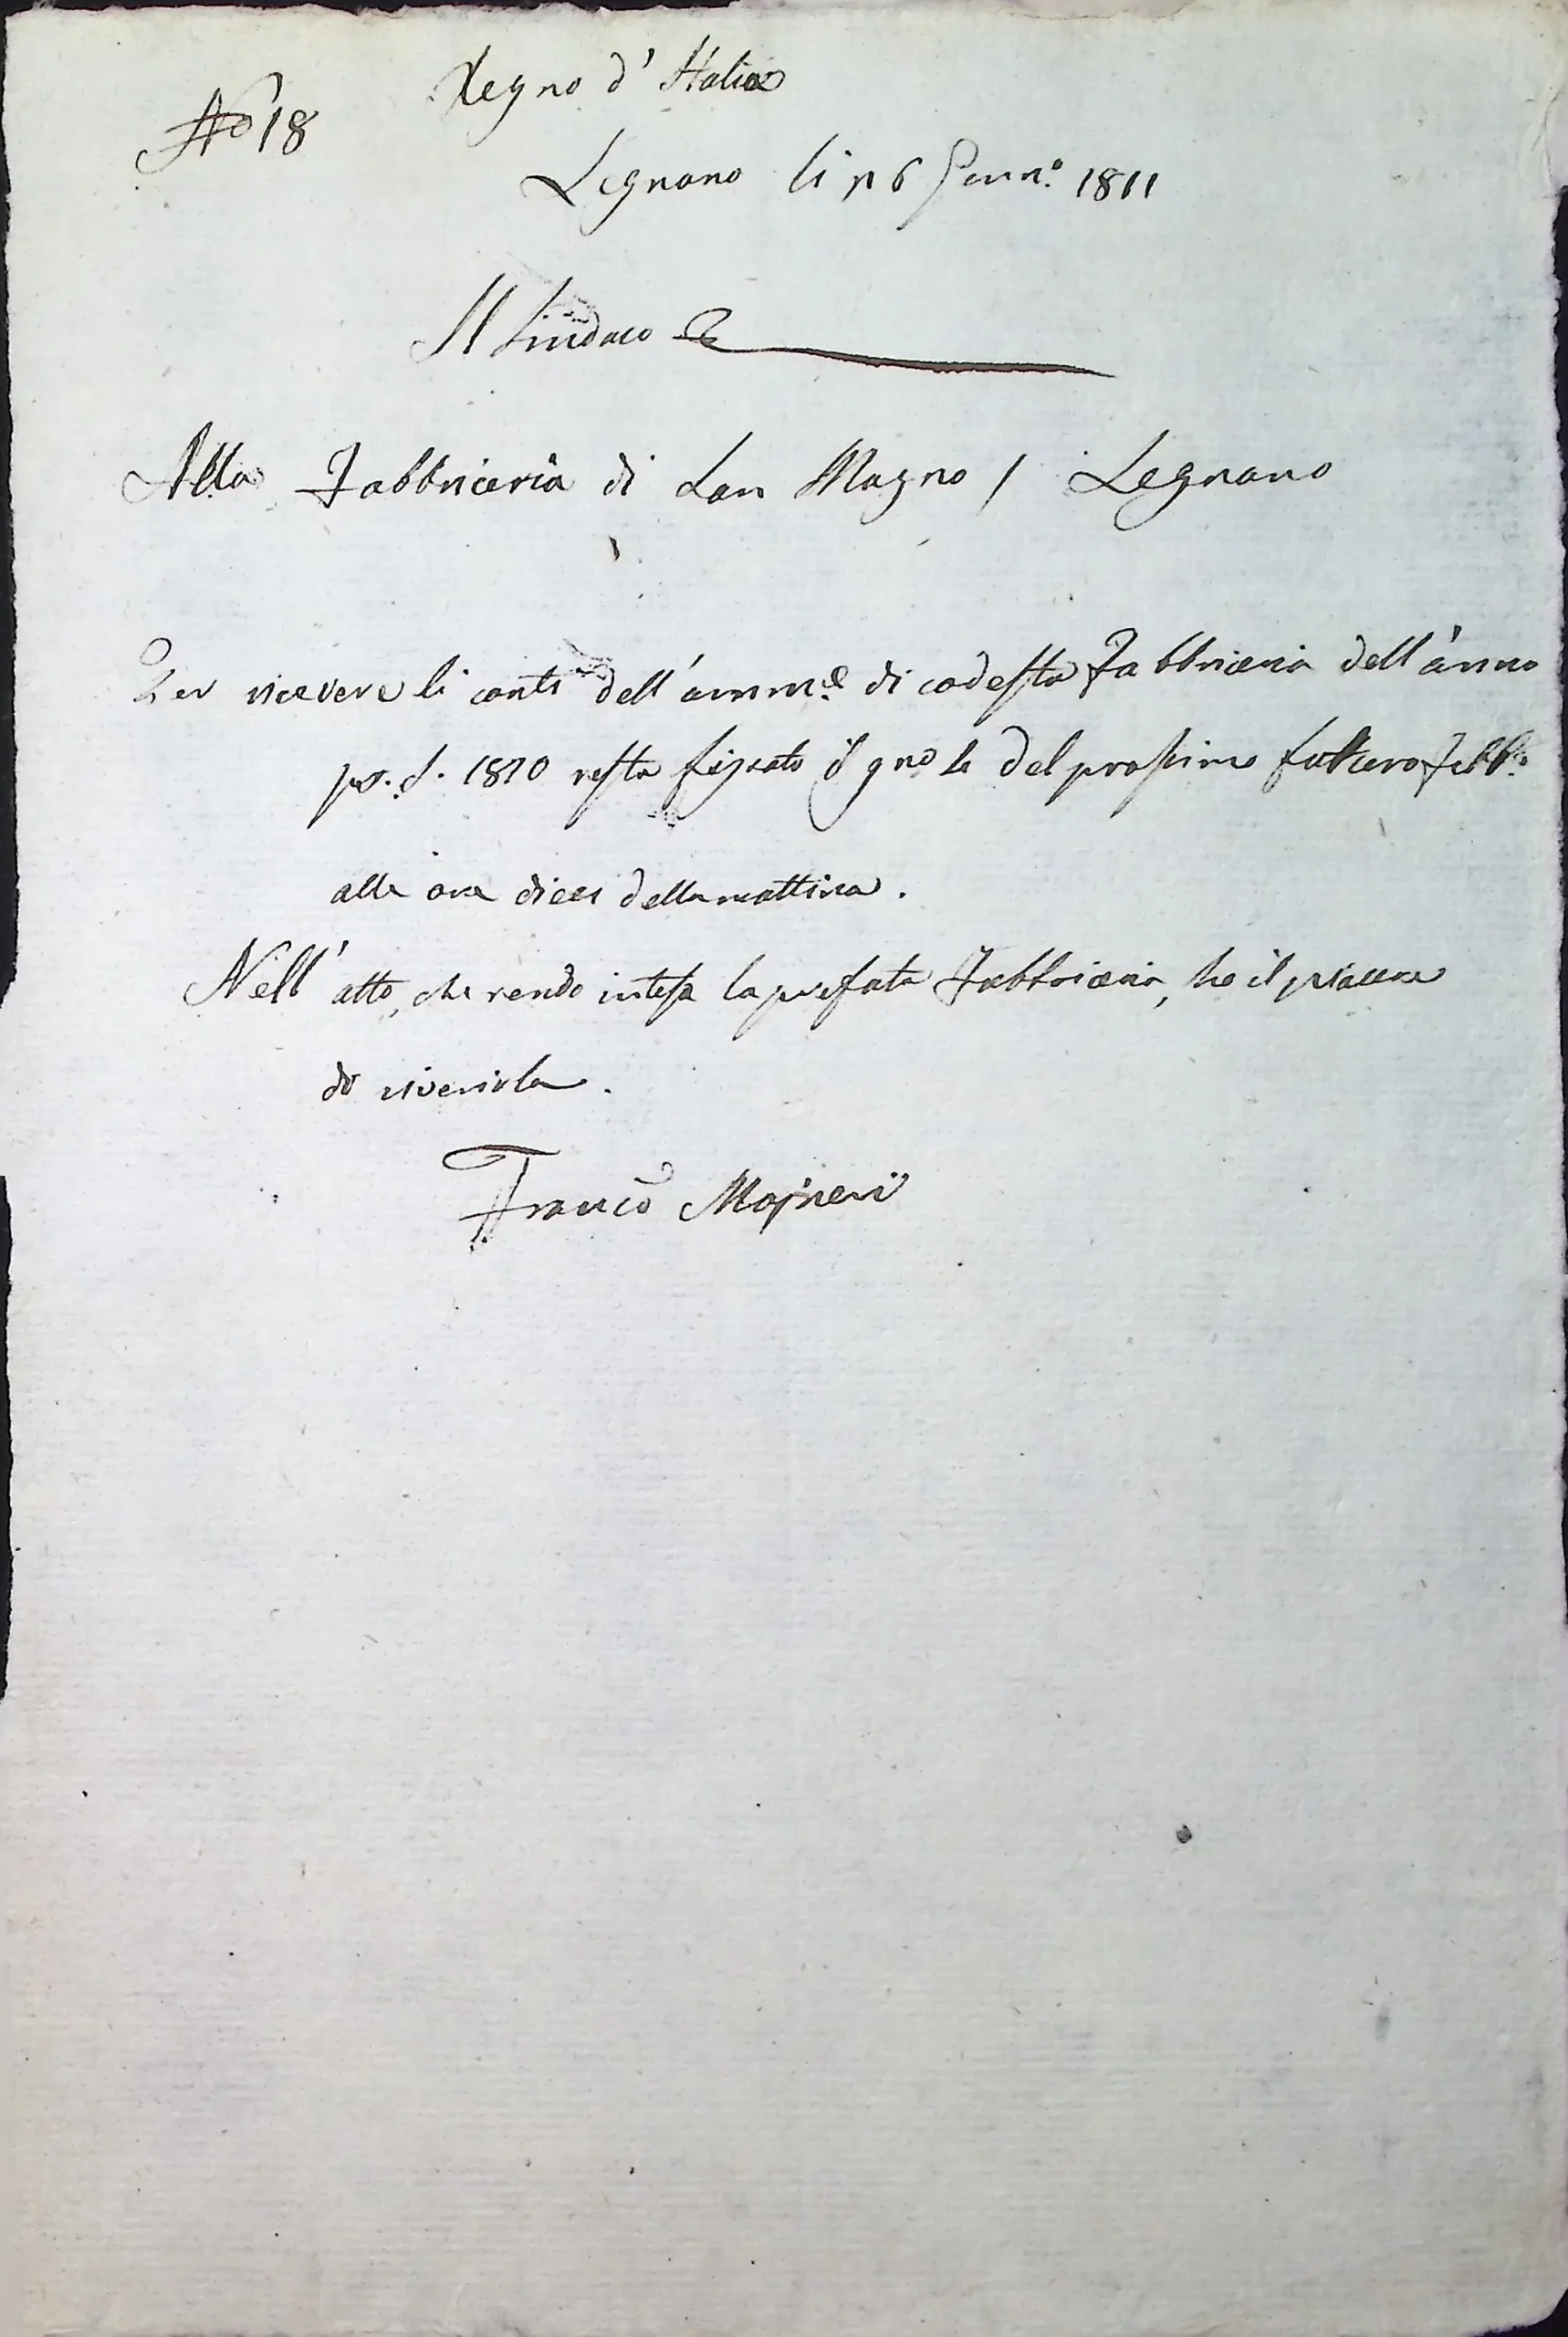 No 18
Regno d' Italia
Legnano li 26 Genn.º 1811
Il Sindaco
Alla Fabbriceria di San Magno / Legnano
Per ricevere li conti dell' amm.e di codesta Fabbriceria dell' anno
p. 1810 resta fissato il gno del prossimo futturo Febb.º
alle ore dieci della mattina.
Nell' atto, che rendo intesa la prefata Fabbriceria, ho il piacere
di riverirla.
Franco Mojneri